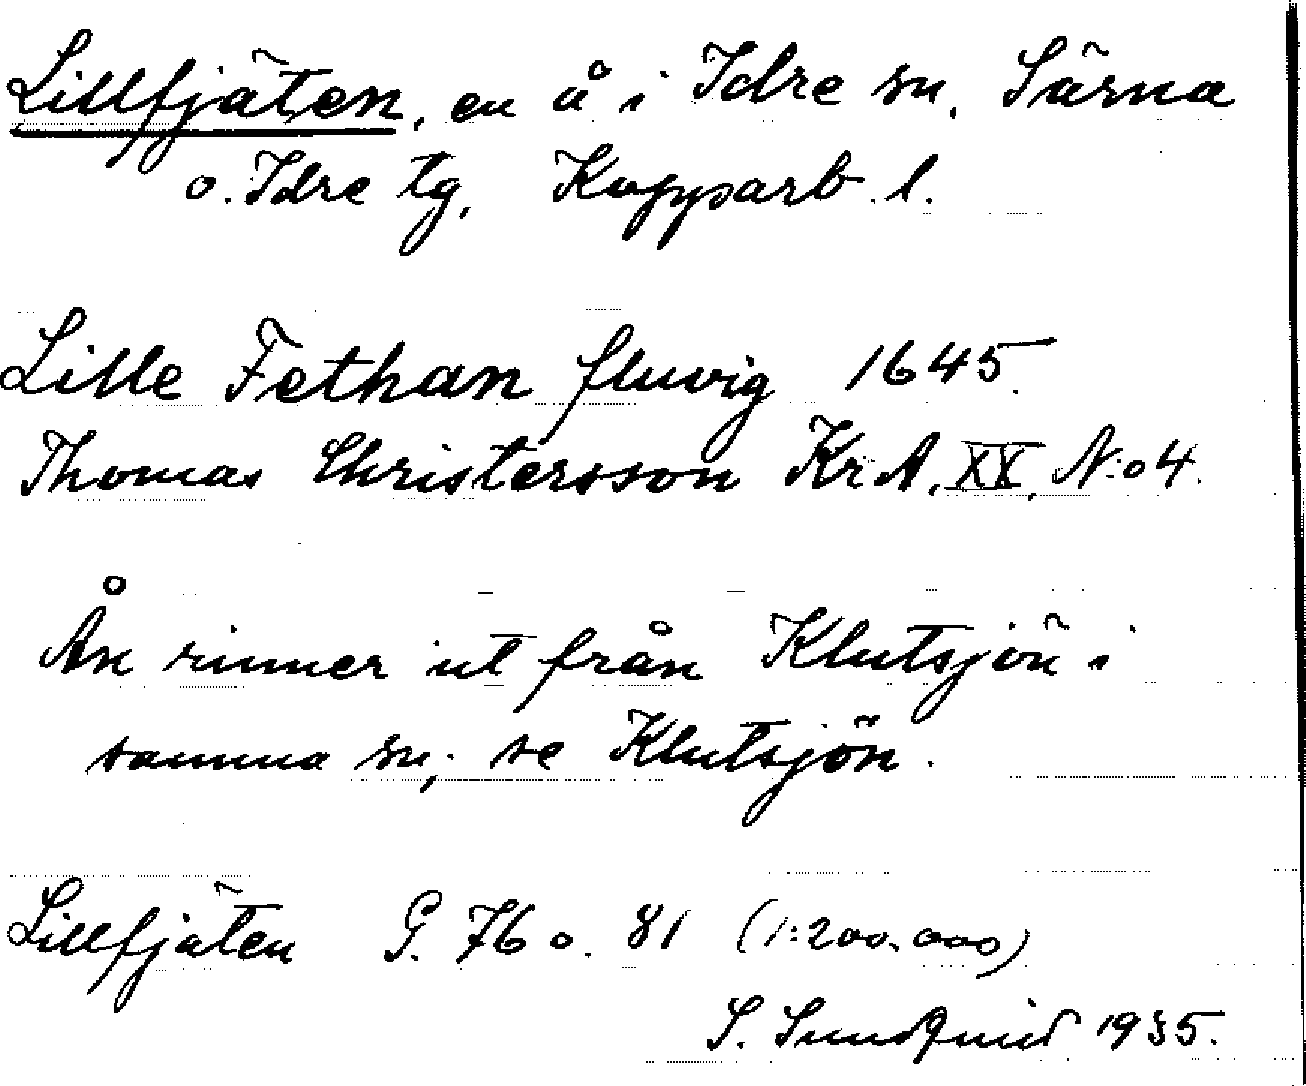 Lillfjäten, en å i Idre sn, Särna
o. Idre tg, Kopparb. l.
Lille Fethan fluvig 1645.
Thomas Christersson KrA, XX, N:o 4.
Ån rinner ut från Klutsjön i
samma sn; se Klutsjön.
Lillfjäten G. 76 o. 81 (1:200.000)
S. Sundquist 1935.